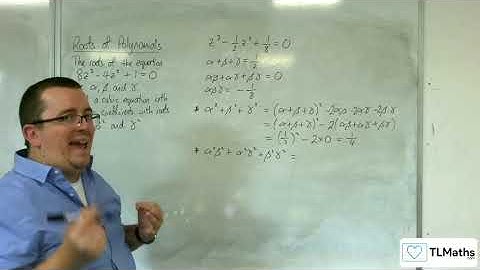 Roots of Polynomials
The roots of the equation
8z³ - 4z² + 1 = 0
α, β and γ
a cubic equation with
coefficients with roots
and γ²
z³ - ½z² + ⅛ = 0
α + β + γ = ½
αβ + αγ + βγ = 0
αβγ = -⅛
* α² + β² + γ² = (α+β+γ)² - 2αβ - 2αγ - 2βγ
= (α+β+γ)² - 2(αβ+αγ+βγ)
= (½)² - 2×0 = ¼
* α²β² + α²γ² + β²γ² =
TLMaths